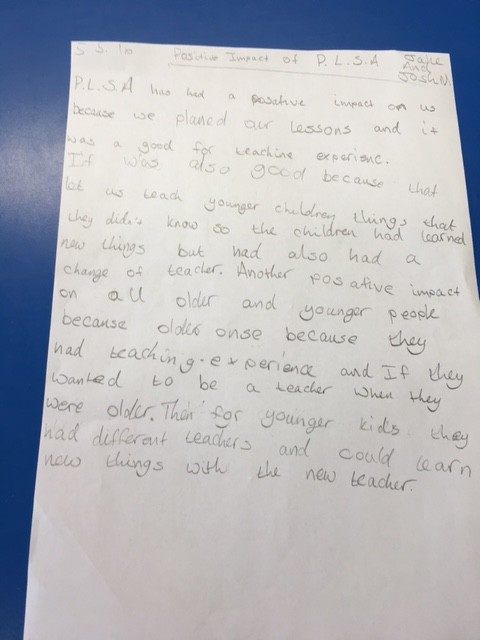 5.5.16 Positive Impact of P.L.S.A
And
Josh M
P.L.S.A has had a posative impact on us
because we planed our lessons and it
was a good for teachine experienc.
It was also good because that
let us teach younger children things that
they didn't know so the children had learned
new things but had also had a
change of teacher. Another posative impact
on all older and younger people
because older onse because they
had teaching experience and If they
wanted to be a teacher when they
were older. Then for younger kids they
had different teachers and could learn
new things with the new teacher.